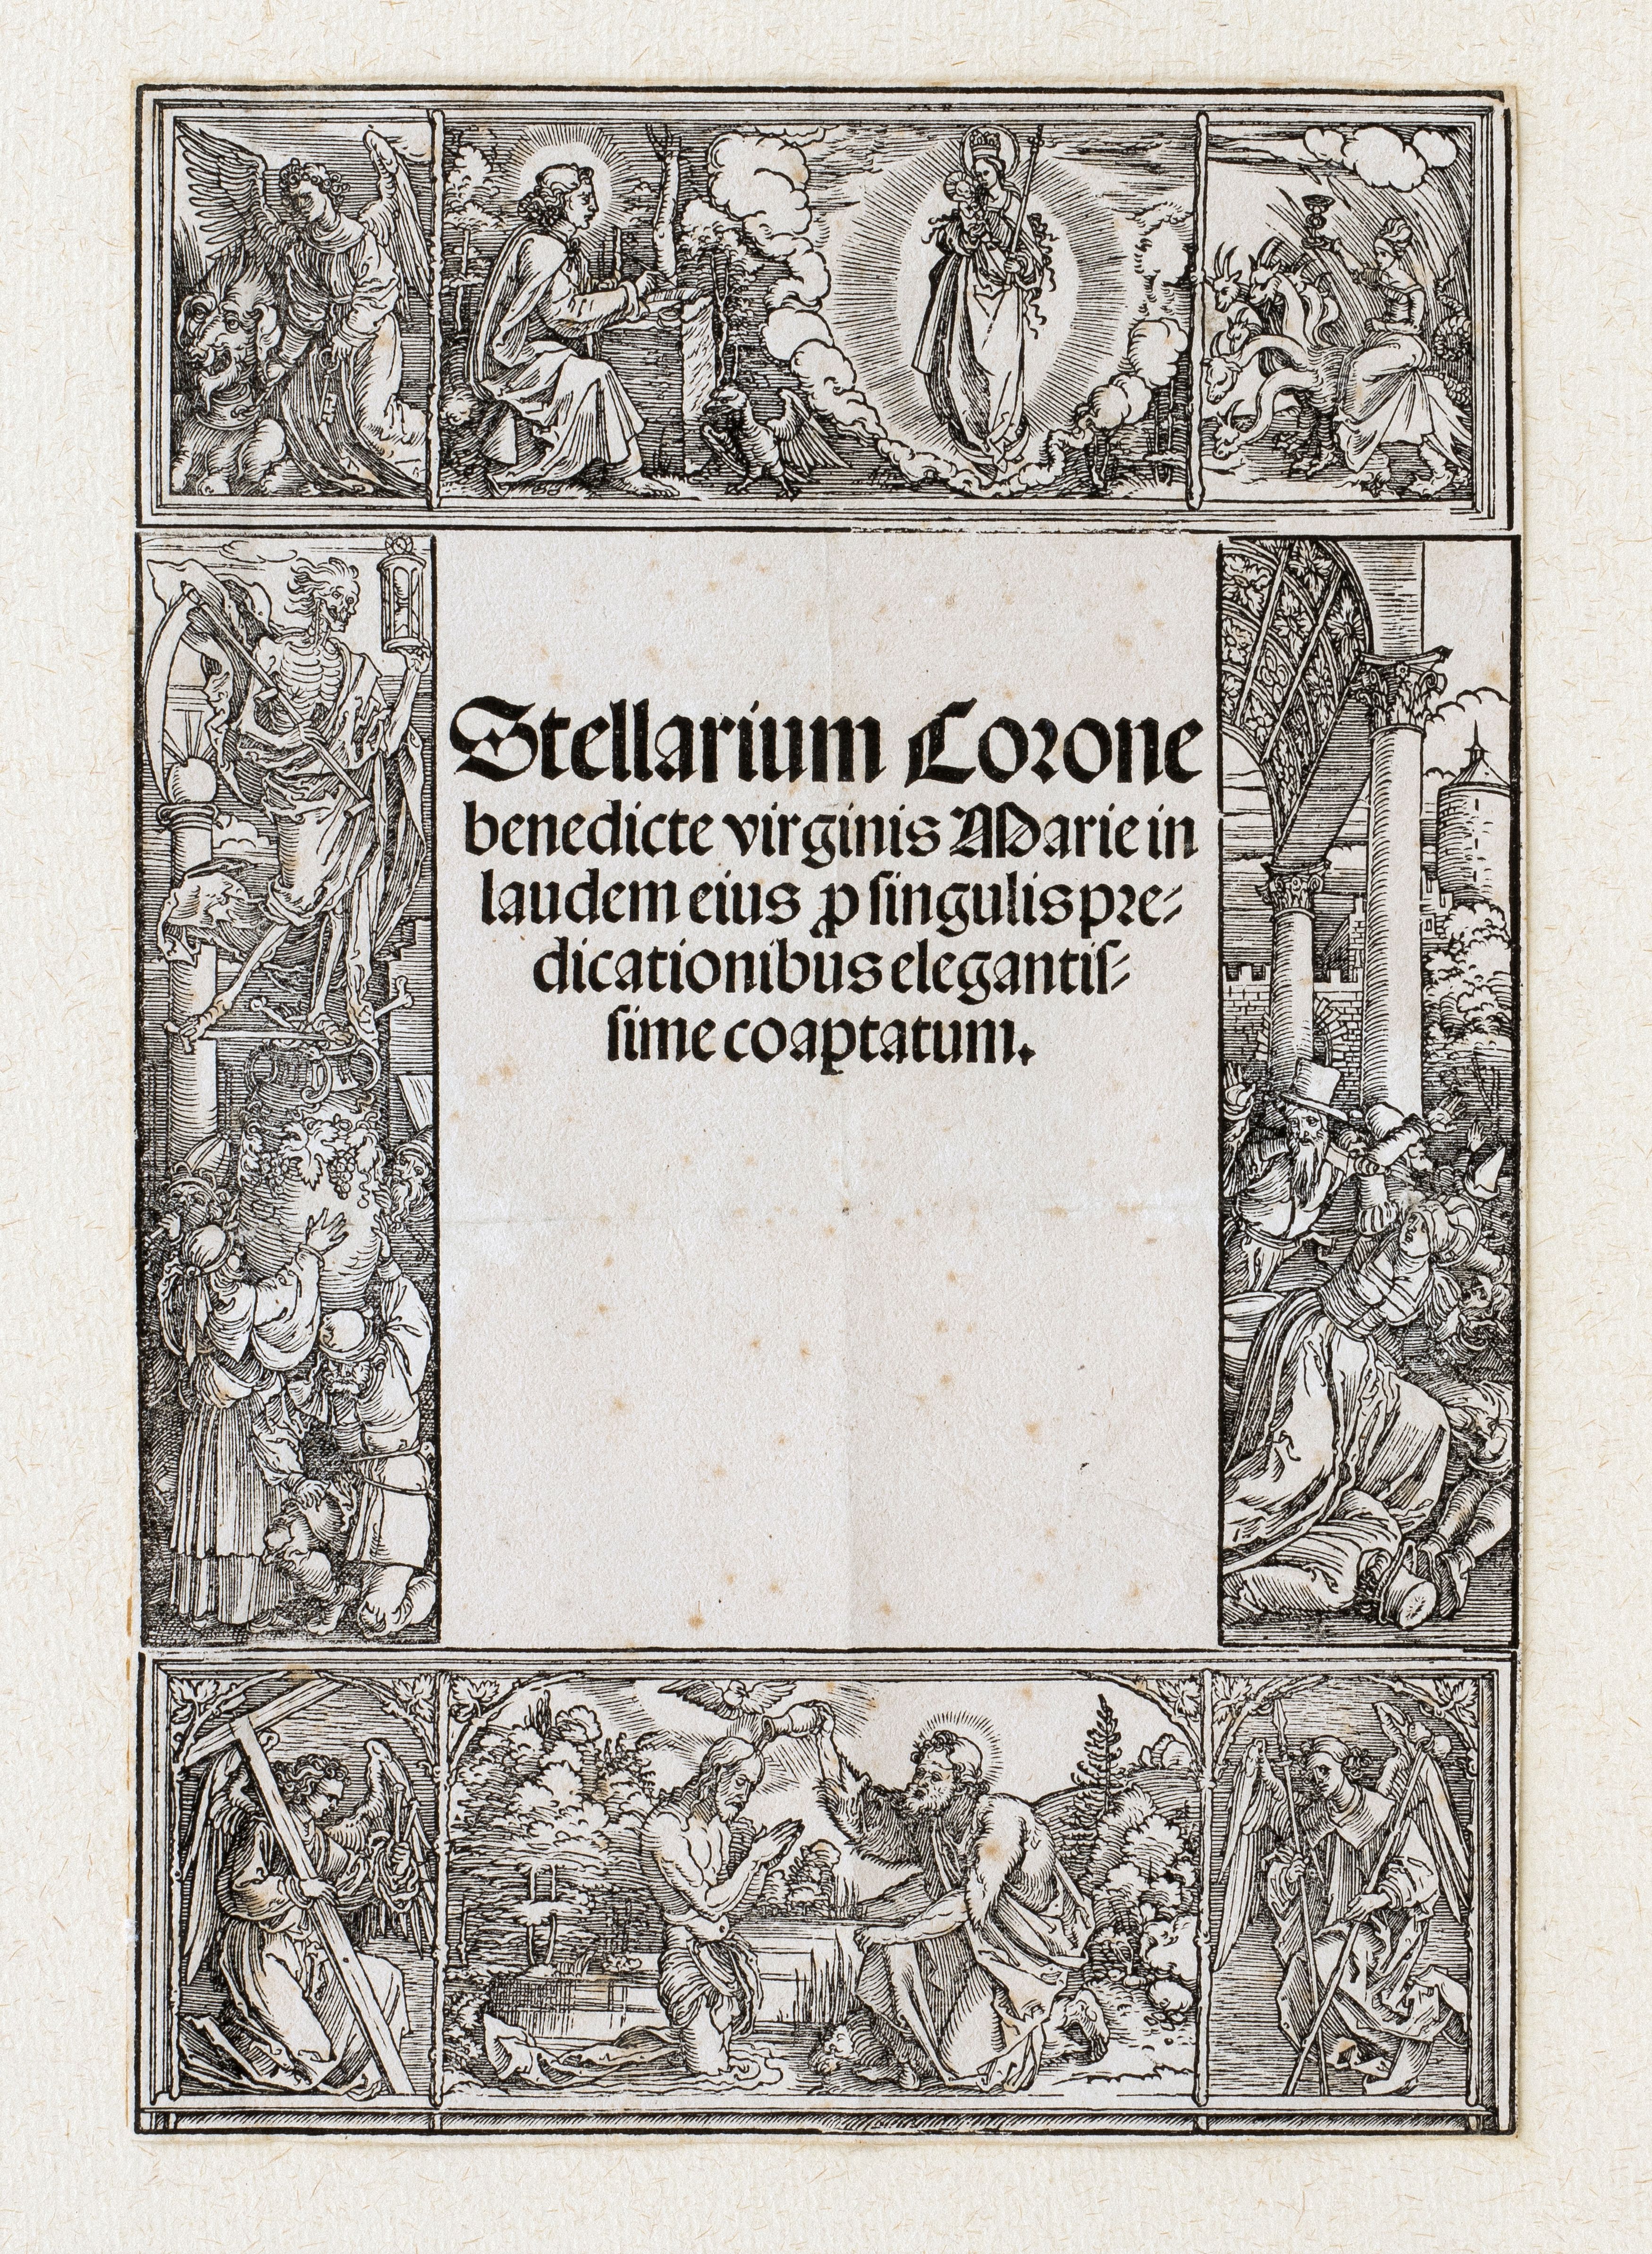 Stellarium Corone
benedicte virginis Marie in
laudem eius ꝓ singulis pre⸗
dicationibus elegantiſ⸗
ſime coaptatum.